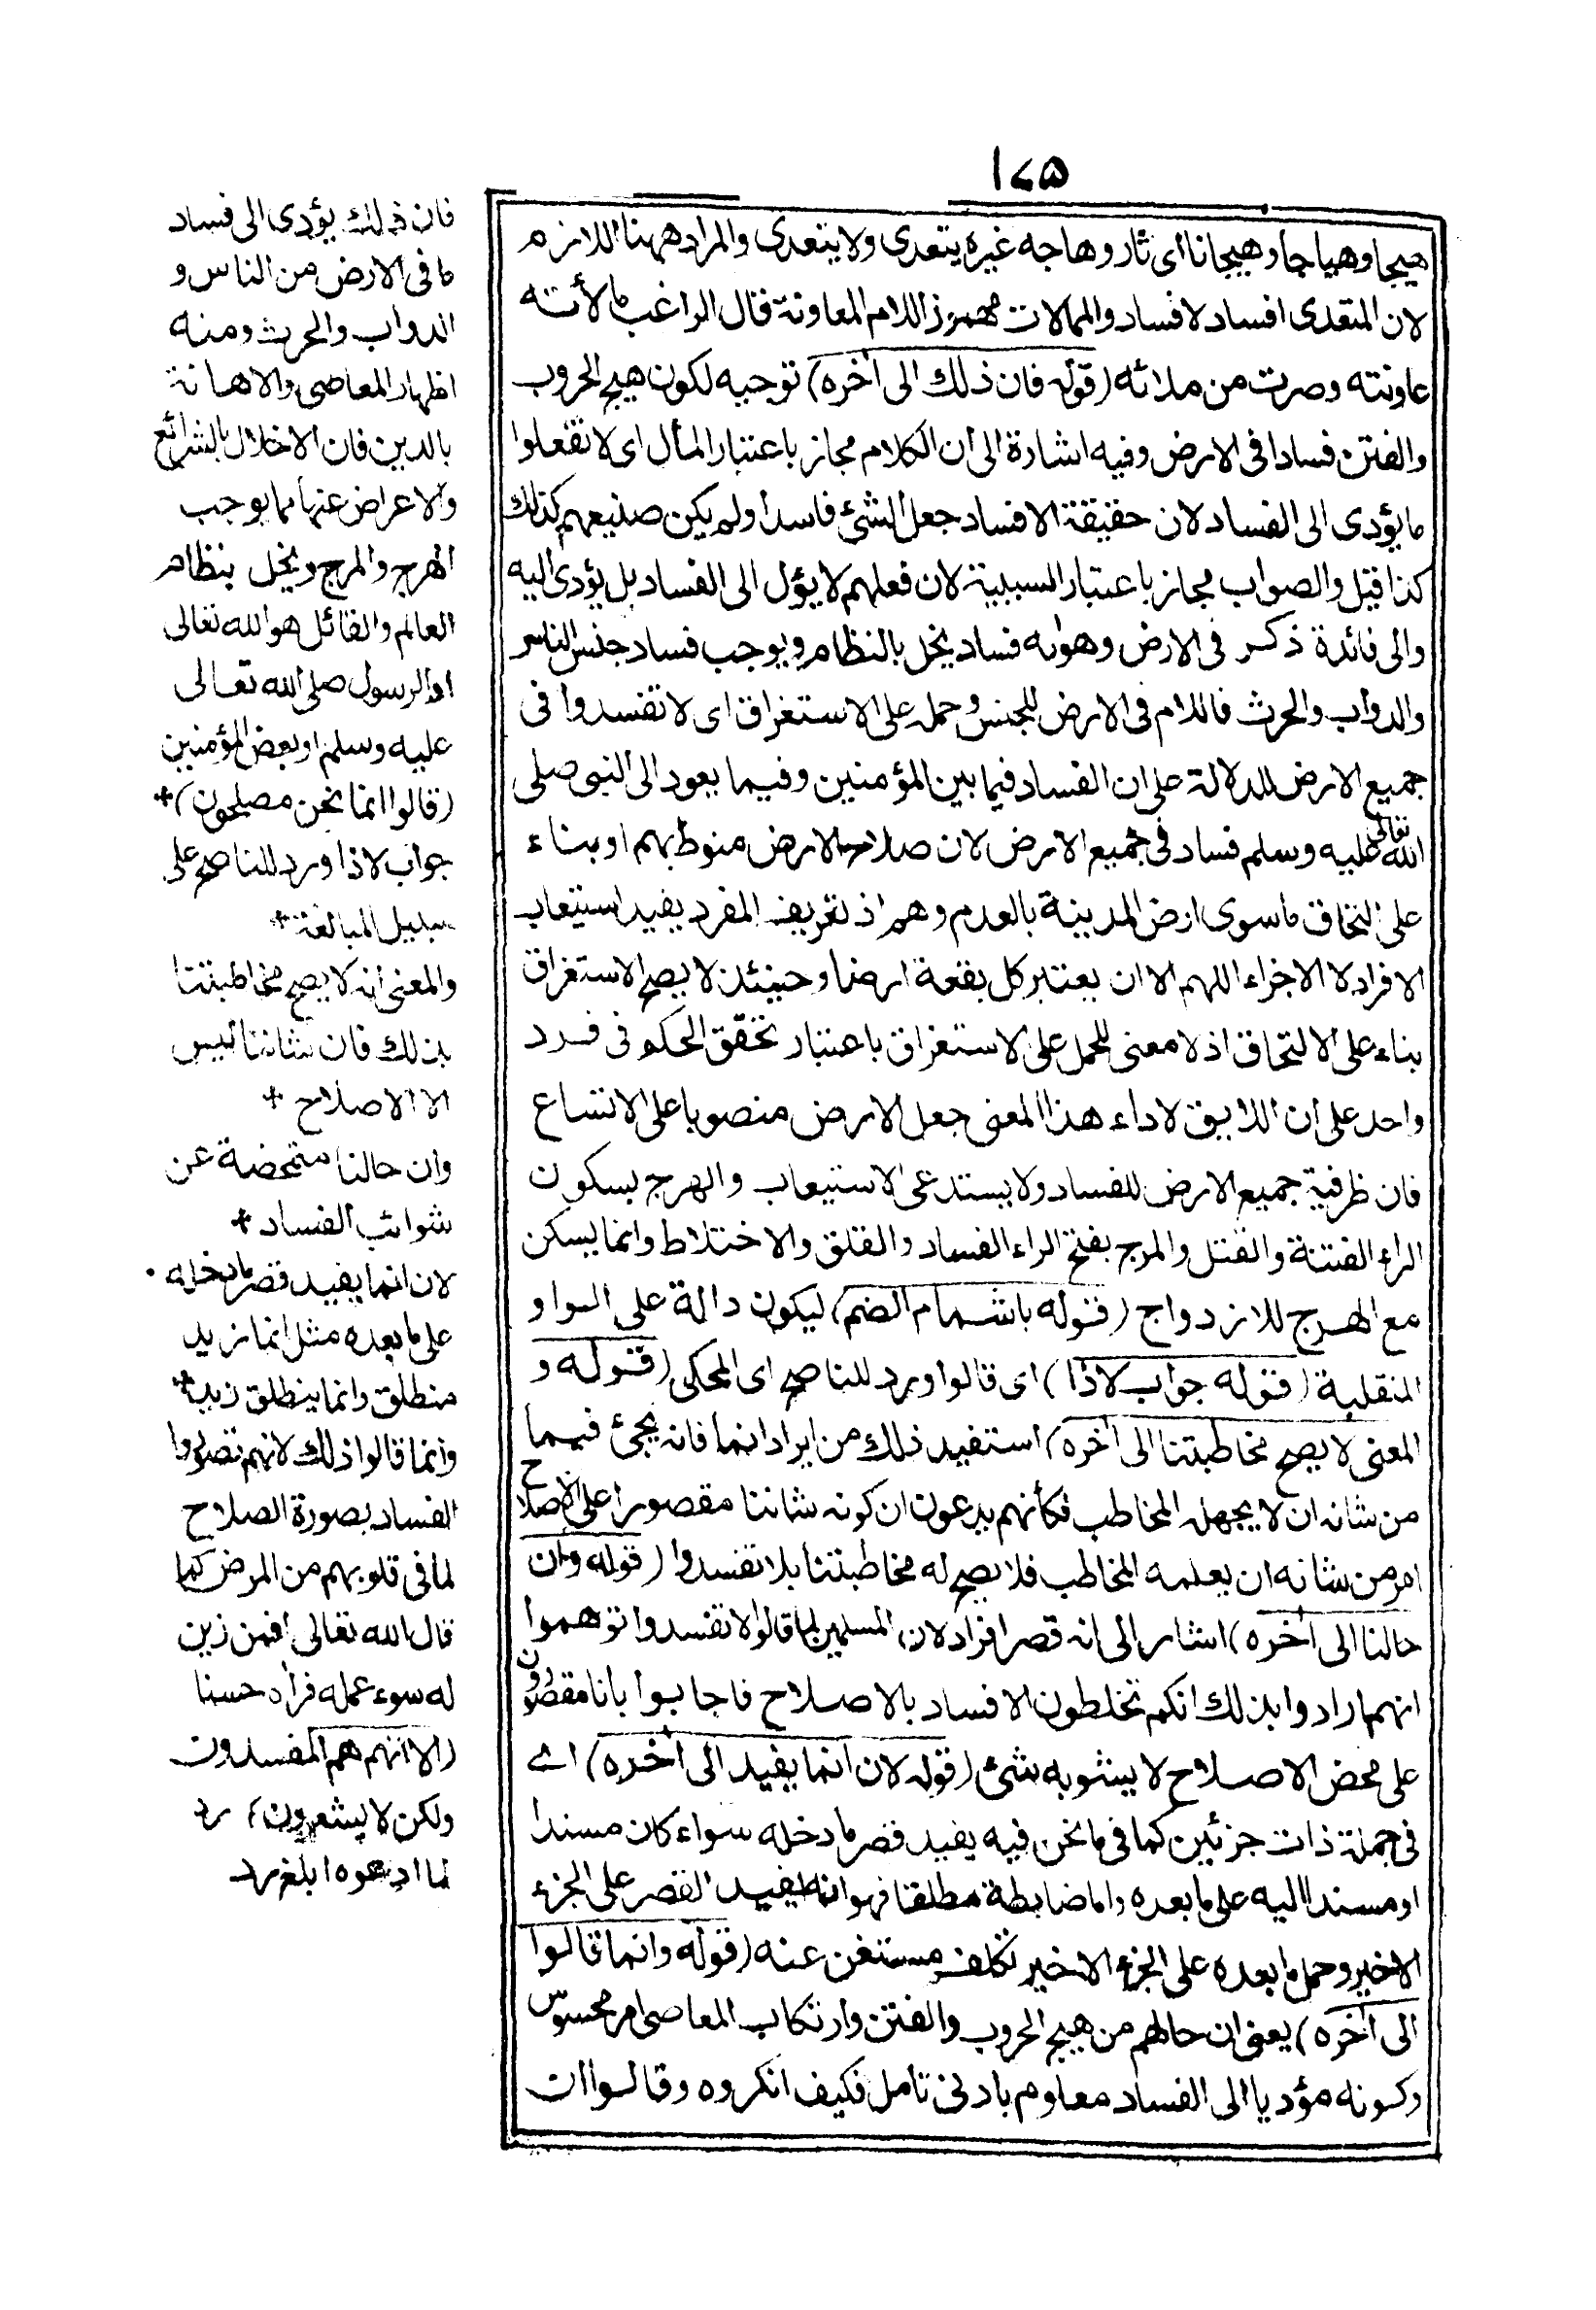 ١٧٥
هيجا وهياجا وهيجانا اى ثار وهاجه غيره يتعدى ولا يتعدى والمراد ههنا اللازم
لان المتعدى افساد لا فساد والممالات مهموز اللام المعاونة قال الراغب مالأته
عاونته وصرت من ملائه (قوله فان ذلك الى آخره) توجيه لكون هيج الحروب
والفتن فسادا فى الارض وفيه اشارة الى ان الكلام مجاز باعتبار المأل اى لا تفعلوا
ما يؤدى الى الفساد لان حقيقة الافساد جعل الشئ فاسدا ولم يكن صنيعهم كذلك
كذا قيل والصواب مجاز باعتبار السببية لان فعلهم لا يؤل الى الفساد بل يؤدى اليه
والى فائدة ذكر فى الارض وهو انه فساد يخل بالنظام ويوجب فساد جنس الناس
والدواب والحرث فاللام فى الارض للجنس وحمله على الاستغراق اى لا تفسدوا فى
جميع الارض للدلالة على ان الفساد فيما بين المؤمنين وفيما يعود الى النبى صلى
الله تعالى عليه وسلم فساد فى جميع الارض لان صلاح الارض منوط بهم او بناء
على التحاق ما سوى ارض المدينة بالعدم وهم اذ تعريف المفرد يفيد استيعاب
الافراد لا الاجزاء اللهم الا ان يعتبر كل بقعة ارضا وحينئذ لا يصح الاستغراق
بناء على الالتحاق اذ لا معنى للحمل على الاستغراق باعتبار تحقق الحكم فى فرد
واحد على ان اللايق لاداء هذا المعنى جعل الارض منصوبا على الاتساع
فان ظرفية جميع الارض للفساد ولا يستدعى الاستيعاب والهرج بسكون
الراء الفتنة والقتل والمرج بفتح الراء الفساد والقلق والاختلاط وانما يسكن
مع الهرج للازدواج (قوله باشمام الضم) ليكون دالة على الواو
المنقلبة (قوله جواب لاذا) اى قالوا ورد للناصح اى المحكى (قوله و
المعنى لا يصح مخاطبتنا الى آخره) استفيد ذلك من ايراد انما فانه يجئ فيما
من شانه ان لا يجهله المخاطب فكأنهم يدعون ان كونه شاننا مقصورا على الاصلاح
امر من شانه ان يعلمه المخاطب فلا يصح له مخاطبتنا بلا تفسدوا (قوله وان
حالنا الى آخره) اشار الى انه قصر افراد لان المسلمين لما قالوا لا تفسدوا توهموا
انهم ارادوا بذلك انكم تخلطون الافساد بالاصلاح فاجابوا بأنا مقصورون
على محض الاصلاح لا يشوبه شئ (قوله لان انما يفيد الى آخره) اے
فى جملة ذات جزئين كما فى ما نحن فيه يفيد قصر ما دخله سواء كان مسندا
او مسندا اليه على ما بعده واما ضابطة مطلقا فهو انه يفيد القصر على الجزء
الاخير وحمل ما بعده على الجزء الاخير تكلف مستغن عنه (قوله وانما قالوا
الى آخره) يعنى ان حالهم من هيج الحروب والفتن وارتكاب المعاصى امر محسوس
وكونه مؤديا الى الفساد معلوم بادنى تامل فكيف انكروه وقالوا ان
فان ذلك يؤدى الى فساد
ما فى الارض من الناس و
الدواب والحرث ومنه
اظهار المعاصى والاهانة
بالدين فان الاخلال بالشرائع
والاعراض عنها مما يوجب
الهرج والمرج ويخل بنظام
العالم والقائل هو الله تعالى
او الرسول صلى الله تعالى
عليه وسلم او بعض المؤمنين
(قالوا انما نحن مصلحون)+
جواب لاذا ورد للناصح على
سبيل المبالغة+
والمعنى انه لا يصح مخاطبتنا
بذلك فان شاننا ليس
الا الاصلاح +
وان حالنا متمحضة عن
شوائب الفساد +
لان انما يفيد قصر ما دخله
على ما بعده مثل انما زيد
منطلق وانما ينطلق زيد+
وانما قالوا ذلك لانهم تصوروا
الفساد بصورة الصلاح
لما فى قلوبهم من المرض كما
قال الله تعالى افمن زين
له سوء عمله فرأه حسنا
(الا انهم هم المفسدون
ولكن لا يشعرون) رد
لما ادعوه ابلغ رد